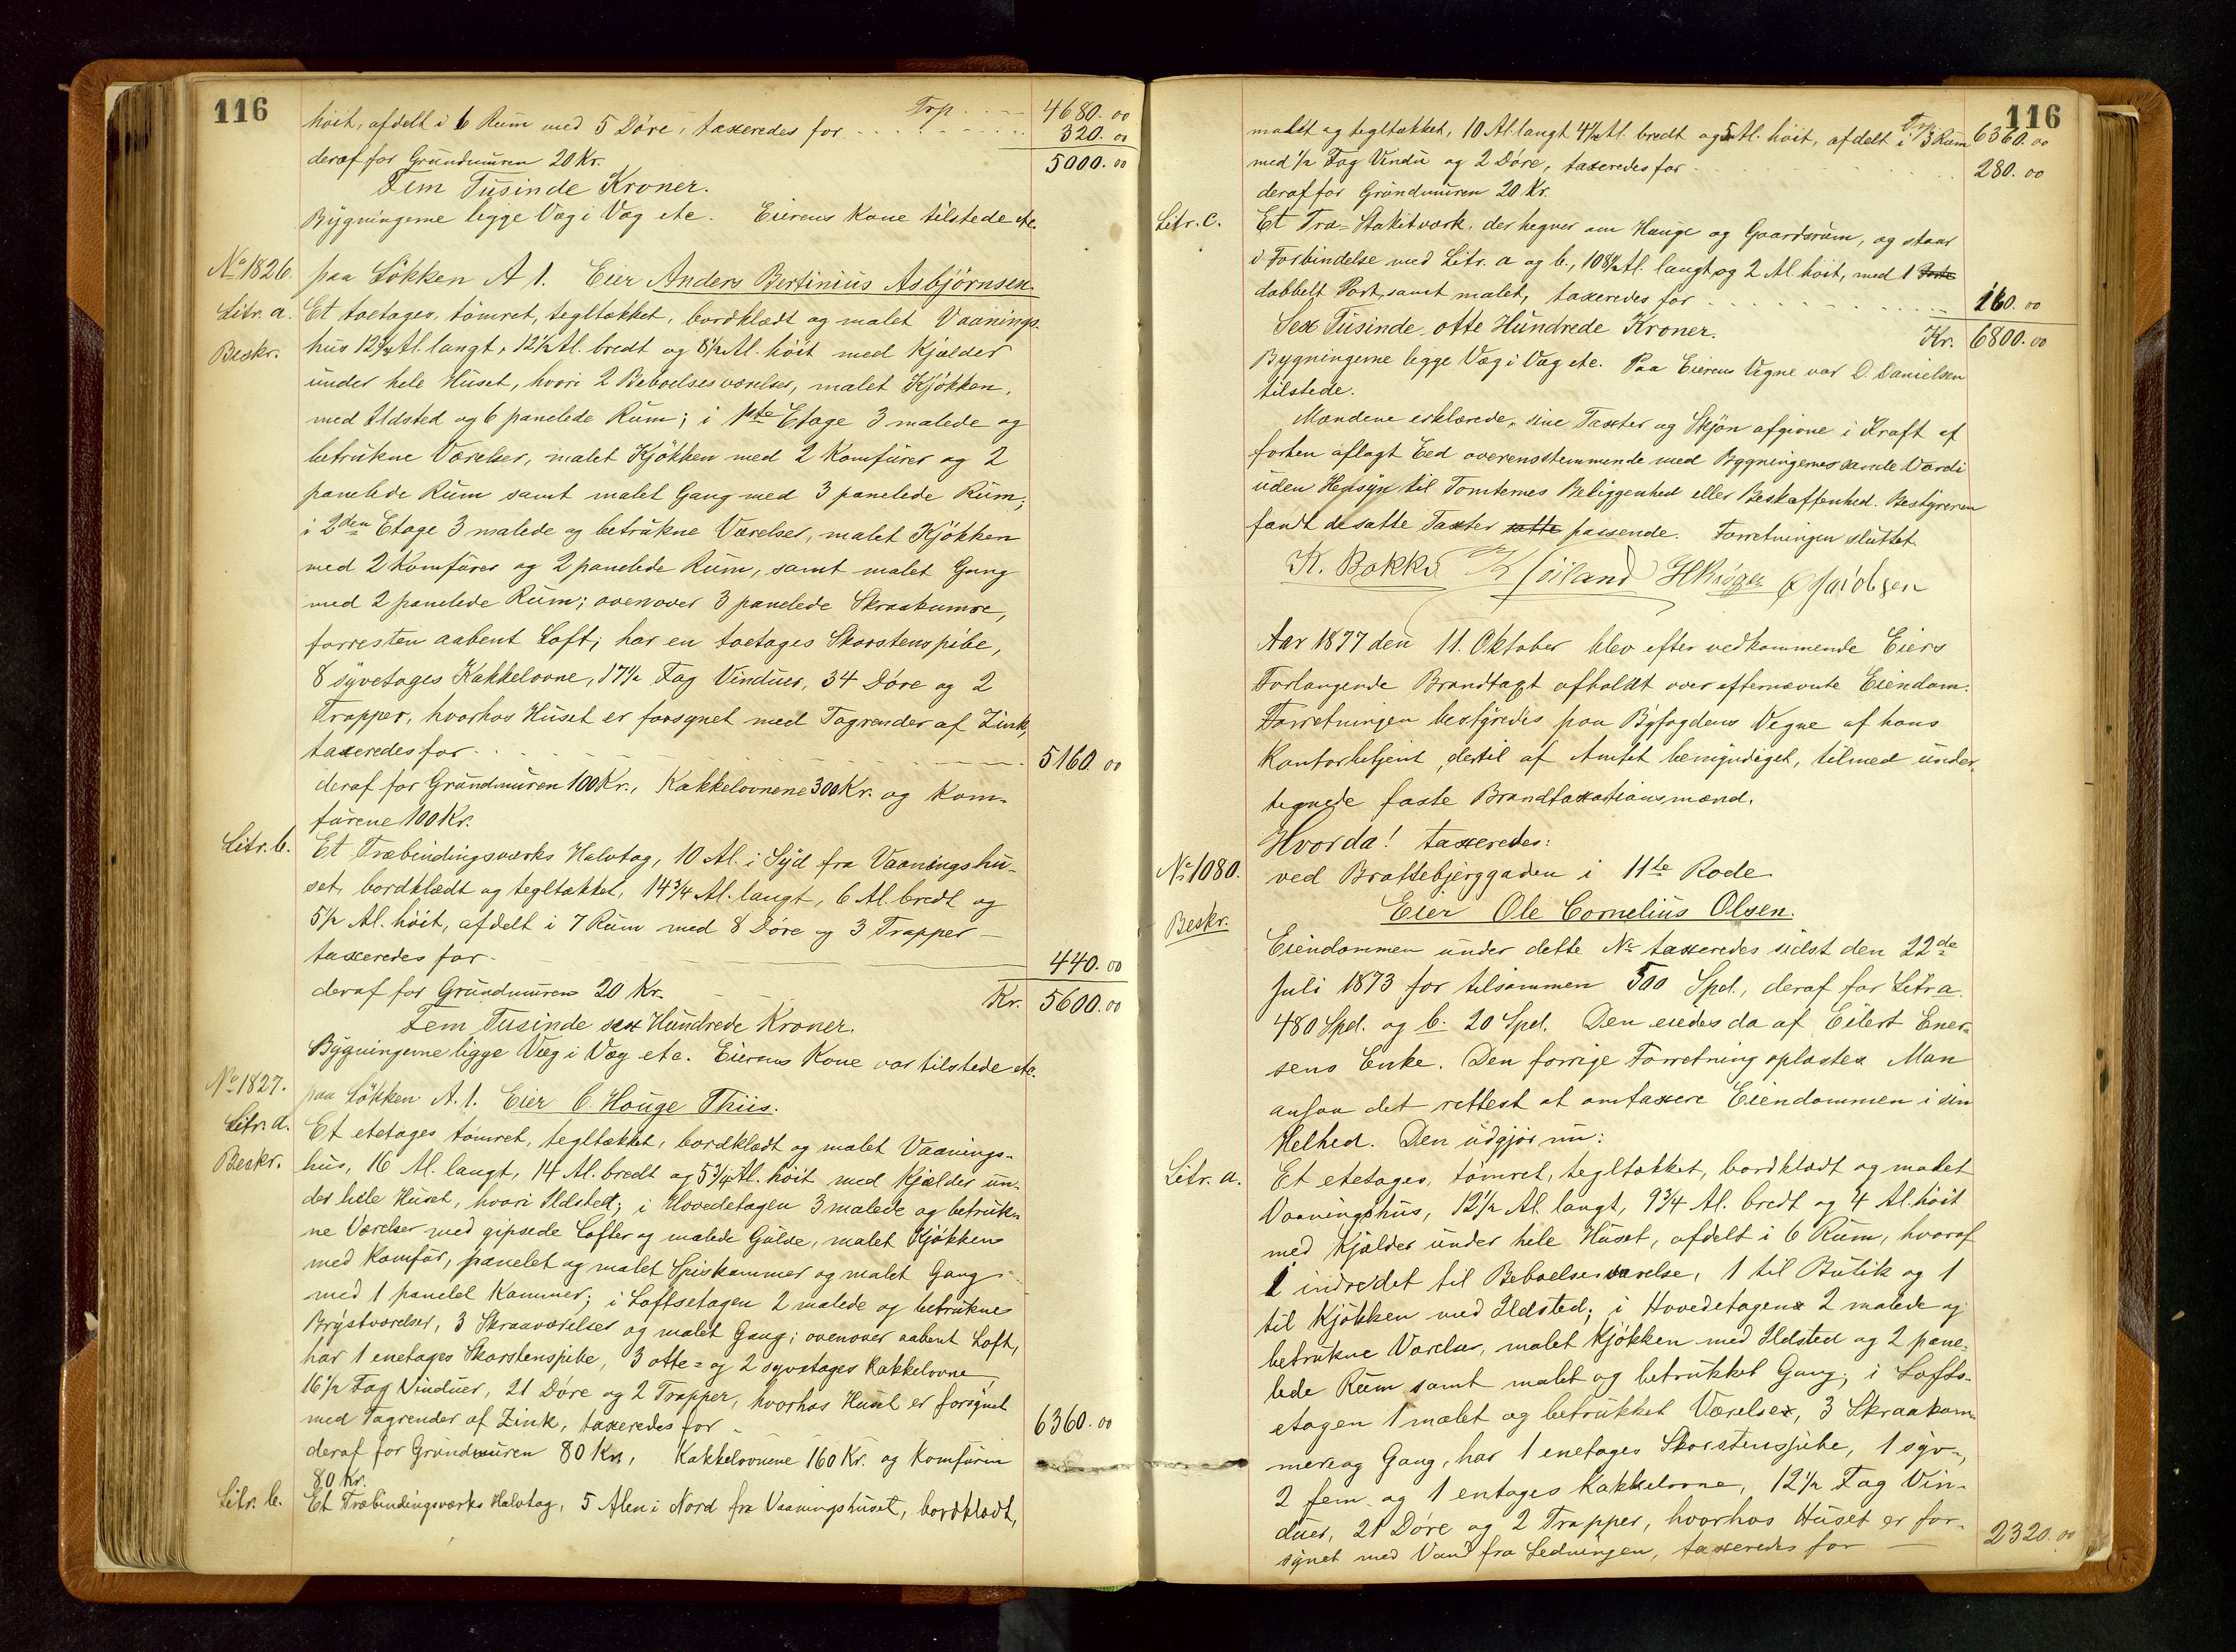 116
Trp. 4680.00
høit, afdelt i 6 Rum med 5 Døre, taxeredes for 320.00
deraf for Grundmuren 20 Kr. 5000.00
Fem Tusinde Kroner.
Bygningerne ligge Væg i Væg etc. Eierens Kone tilstede etc.
No 1826. paa Løkken A 1. Eier Anders Bertinius Asbjørnsen.
Litr. a. Et toetages, tømret, tegltækket, bordklædt og malet Vaanings-
Beskr. hus 12 1/2 Al. langt, 12 1/2 Al. bredt og 8 1/2 Al. høit med Kjælder
under hele Huset, hvori 2 Beboelsesværelser, malet Kjøkken,
med Ildsted og 6 panelede Rum; i 1ste Etage 3 malede og
betrukne Værelser, malet Kjøkken med 2 Komfurer og 2
panelede Rum samt malet Gang med 3 panelede Rum;
i 2den Etage 3 malede og betrukne Værelser, malet Kjøkken
med 2 Komfurer og 2 panelede Rum, samt malet Gang
med 2 panelede Rum; ovenover 3 panelede Skraakumre,
forresten aabent Loft; har en toetages Skorstenspibe,
8 syvetages Kakkelovne, 17 1/2 Fag Vinduer, 34 Døre og 2
Trapper, hvorhos Huset er forsynet med Tagrender af Zink,
taxeredes for 5160.00
deraf for Grundmuren 100 Kr., Kakkelovnene 300 Kr. og Kom-
furene 100 Kr.
Litr. b. Et Træbindingsværks Halvtag, 10 Al. i Syd fra Vaaningshu-
set, bordklædt og tegltækket, 14 3/4 Al. langt, 6 Al. bredt og
5 1/2 Al. høit, afdelt i 7 Rum med 8 Døre og 3 Trapper
taxeredes for 440.00
deraf for Grundmuren 20 Kr. Kr. 5600.00
Fem Tusinde sex Hundrede Kroner.
Bygningerne ligge Væg i Væg etc. Eierens Kone var tilstede etc.
No 1827. paa Løkken A. 1. Eier C. Houge Thiis.
Litr. a. Et etetages tømret, tegltækket, bordklædt og malet Vaanings-
Beskr. hus, 16 Al. langt, 14 Al. bredt og 5 3/4 Al. høit med Kjælder un-
der hele Huset, hvori Ildsted; i Hovedetagen 3 malede og betruk-
ne Værelser med gipsede Lofter og malede Gulve, malet Kjøkken
med Komfur, panelet og malet Spiskammer og malet Gang
med 1 panelet Kammer; i Loftsetagen 2 malede og betrukne
Brystværelser, 3 Skraaværelser og malet Gang; ovenover aabent Loft,
har 1 enetages Skorstenspibe, 3 otte- og 2 syvetages Kakkelovne,
16 1/2 Fag Vinduer, 21 Døre og 2 Trapper, hvorhos Huset er forsynet
med Tagrender af Zink, taxeredes for 6360.00
deraf for Grundmuren 80 Kr., Kakkelovnene 160 Kr. og Komfuren
80 Kr.
Litr. b. Et Træbindingsværks Halvtag, 5 Alen i Nord fra Vaaningshuset, bordklædt,
116
Trp.
malet og tegltækket, 10 Al. langt 4 1/2 Al. bredt og 5 Al. høit, afdelt i 3 Rum 6360.00
med 1/2 Fag Vindu og 2 Døre, taxeredes for 280.00
deraf for Grundmuren 20 Kr.
Litr. c. Et Træ-Stakitværk, der hegner om Hauge og Gaardsrum, og staar
i Forbindelse med Litr. a og b., 108 1/2 Al. langt og 2 Al. høit, med 1 Porte
dobbelt Port, samt malet, taxeredes for 160.00
Sex Tusinde, otte Hundrede Kroner. Kr. 6800.00
Bygningerne ligge Væg i Væg etc. Paa Eierens Vegne var D. Danielsen
tilstede.
Mændene erklærede, sine Taxter og Skjøn afgivne i Kraft af
forhen aflagt Eed overensstemmende med Bygningernes sande Værdi
uden Hensyn til Tomternes Beliggenhed eller Beskaffenhed. Bestyreren
fandt de satte Taxter satte passende. Forretningen sluttet.
K. Bokke Høiland Jacobsen
Aar 1877 den 11. Oktober blev efter vedkommende Eiers
Forlangende Brandtaxt afholdt over efternævnte Eiendom.
Forretningen bestyredes paa Byfogdens Vegne af hans
Kontorbetjent, dertil af Amtet bemyndiget, tilmed under-
tegnede faste Brandtaxationsmænd.
Hvorda! taxeredes:
No 1080. ved Brattebjerggaden i 11te Rode.
Eier Ole Cornelius Olsen.
Beskr. Eiendommen under dette No taxeredes sidst den 22de
Juli 1873 for tilsammen 500 Spd., deraf for Litr a.
480 Spd. og b. 20 Spd. Den eiedes da af Eilert Ener-
sens Enke. Den forrige Forretning oplæstes. Man
ansaa det rettest at omtaxere Eiendommen i sin
Helhed. Den udgjør nu:
Litr. a. Et etetages, tømret, tegltækket, bordklædt og malet
Vaaningshus, 12 1/2 Al. langt, 9 3/4 Al. bredt og 4 Al. høit
med Kjælder under hele Huset, afdelt i 6 Rum, hvoraf
1 indredet til Beboelsesværelse, 1 til Butik og 1
til Kjøkken med Ildsted; i Hovedetagen 2 malede og
betrukne Værelser, malet Kjøkken med Ildsted og 2 pane-
lede Rum samt malet og betrukket Gang; i Lofts-
etagen 1 malet og betrukket Værelse, 3 Skraakam-
mere og Gang, har 1 enetages Skorstenspibe, 1 syv-,
2 fem- og 1 entages Kakkelovne, 12 1/2 Fag Vin-
duer, 21 Døre og 2 Trapper, hvorhos Huset er for-
synet med Vand fra Ledningen, taxeredes for 2320.00